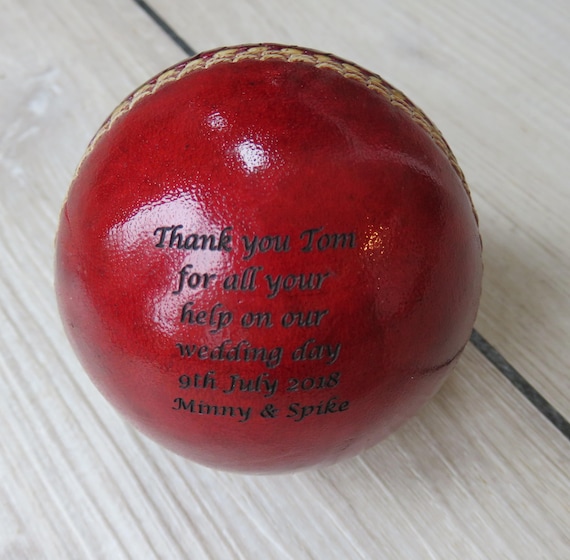 Thank you Tom
for all your
help on our
wedding day
9th July 2018
Minny & Spike